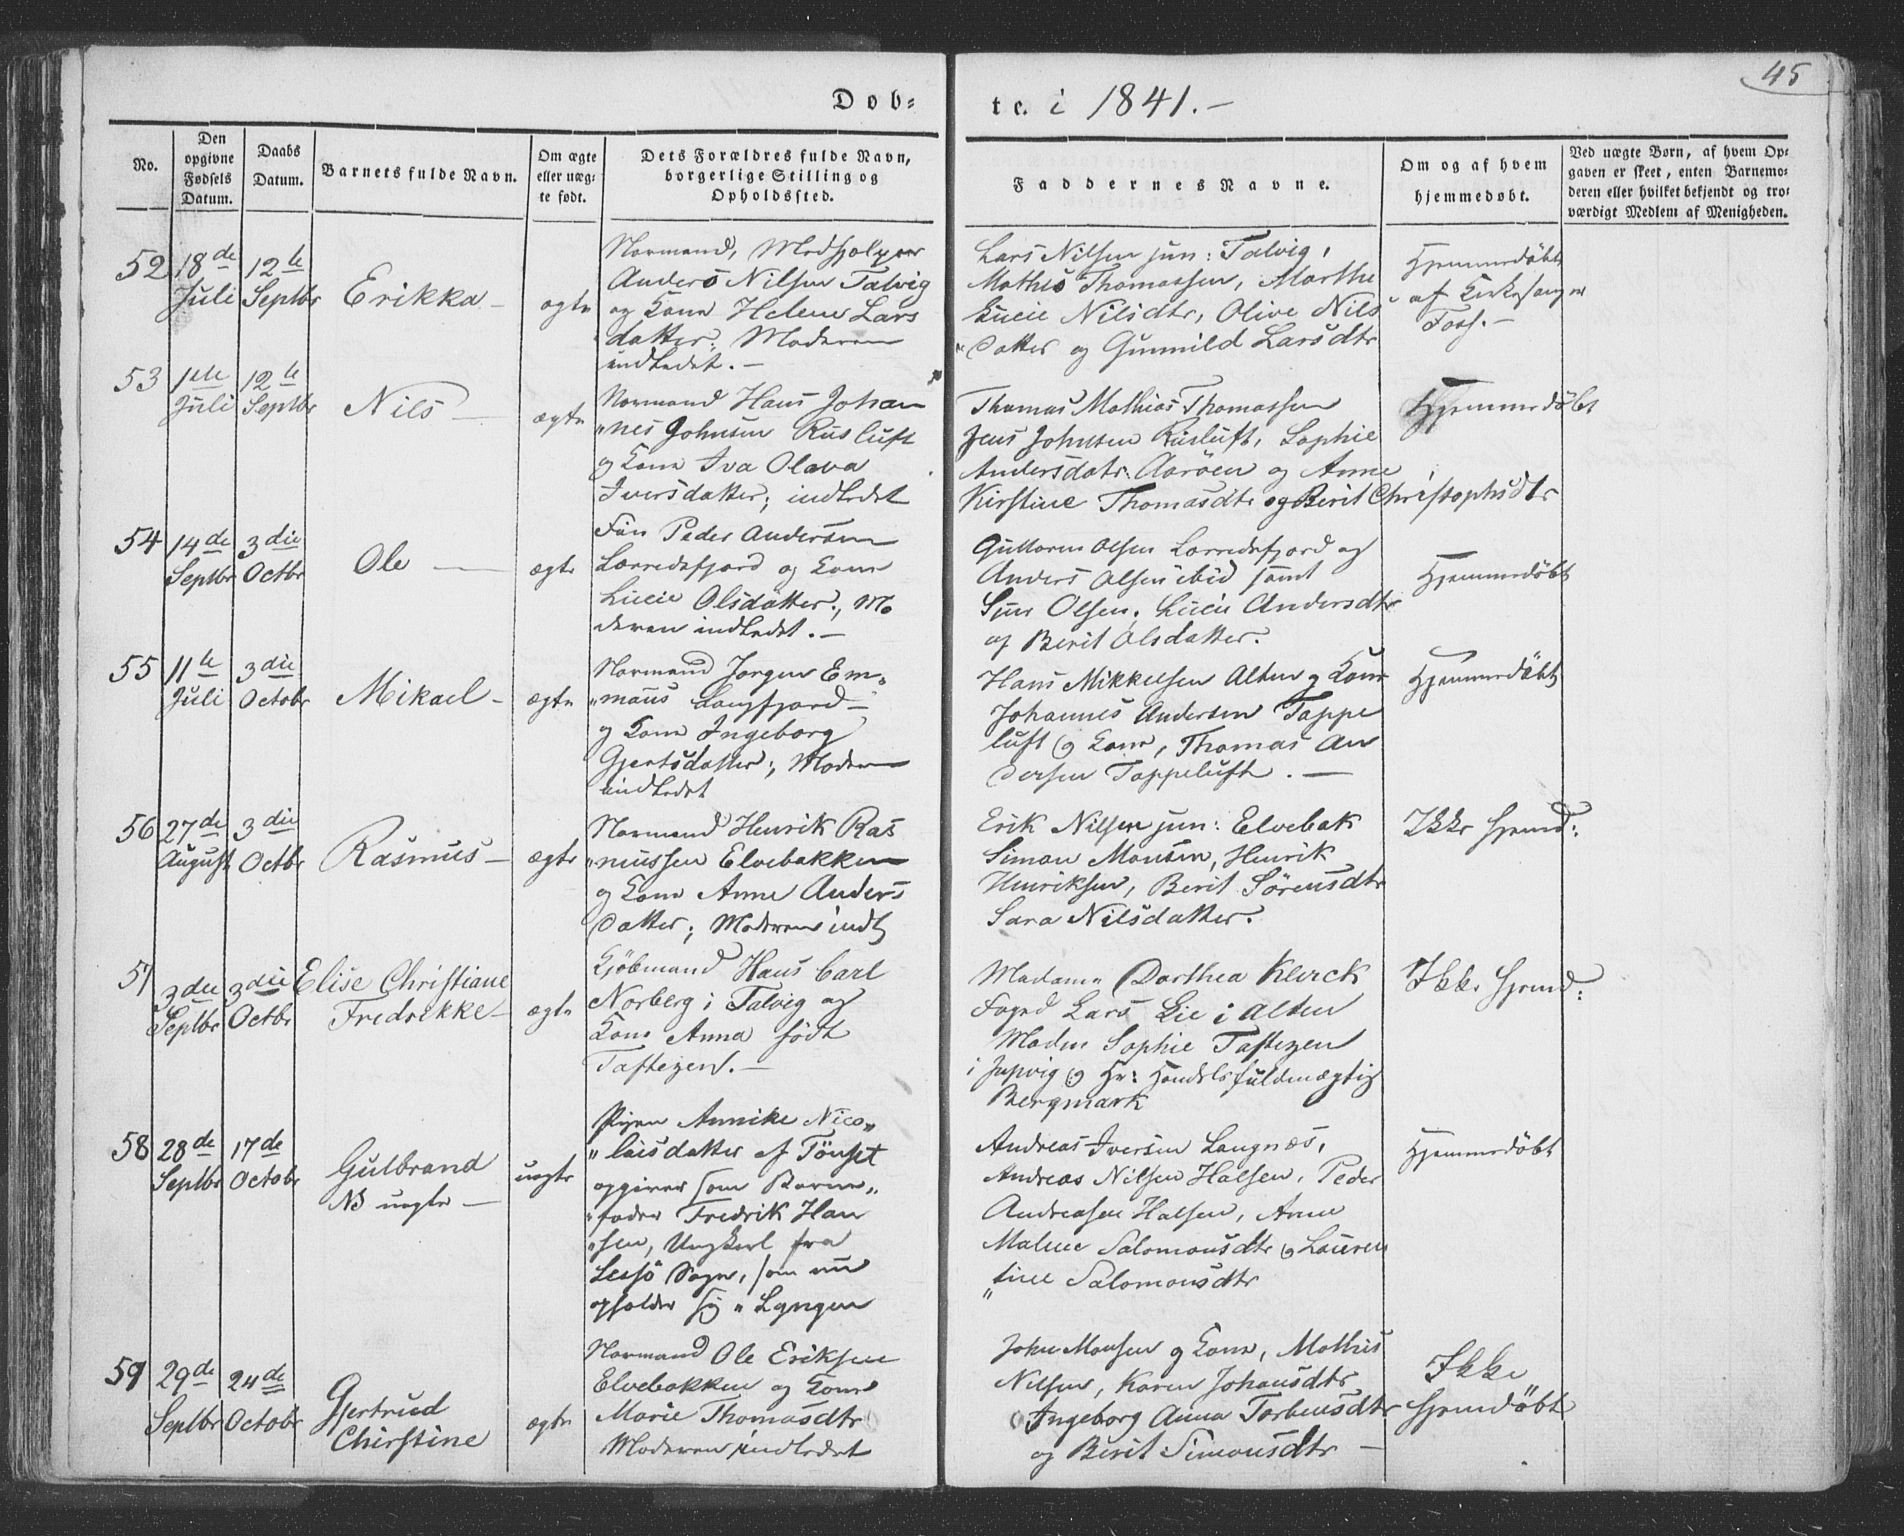 45
Døb=
te. i 1841.-
No.
Den
opgivne
Fødsels
Datum.
Daabs
Datum.
Barnets fulde Navn.
Om ægte
eller uæg-
te født.
Dets Forældres fulde Navn,
borgerlige Stilling og
Opholdssted.
Faddernes Navne.
Om og af hvem
hjemmedøbt.
Ved uægte Børn, af hvem Op-
gaven er skeet, enten Barnemo-
deren eller hvilket bekjendt og tro-
værdigt Medlem af Menigheden.
52
18de
Juli
12te
Septbr
Erikka -
ægte
Normand, Medhjelper
Anders Nilsen Talvig
og Kone Helene Lars
datter; Moderen
indledet. -
Lars Nilsen jun: Talvig,
Mathis Thomassen, Marthe
Lucie Nilsdtr, Olive Nils
datter og Gunnild Larsdtr
Hjemmedøbt
af Kirkesanger
Foss. -
53
1ste
Juli
12te
Septbr
Nils -
ægte
Normand Hans Johan
"nes Johnsen Rusluft
og Kone Iva Olava
Iversdatter; indledet
Thomas Mathias Thomassen
Jens Johnsen Rusluft, Sophie
Andersdatr. Aarøen og Anne
Kirstine Thomasdtr og Berit Christophsdtr
Hjemmedøbt
54
14de
Septbr
3die
Octbr
Ole -
ægte
Fin Peder Andersen
Lerredsfjord og Kone
Lucie Olsdatter; Mo
deren indledet. -
Guttorm Olsen Lerredsfjord og
Anders Olsen ibid samt
Siur Olsen, Lucie Andersdtr
og Berit Olsdatter.
Hjemmedøbt
55
11te
Juli
3die
Octobr
Mikael -
ægte
Normand Jørgen Em-
"maus Langfjord -
og Kone Ingeborg
Gjertsdatter; Moderen
indledet
Hans Mikkelsen Alten og Kone
Johannes Andersen Tappe
luft og Kone, Thomas An
dersen Tappeluft. -
Hjemmedøbt
56
27de
August
3die
Octbr
Rasmus -
ægte
Normand Henrik Ras
"mussen Elvebakken
og Kone Anne Anders
datter; Moderen indl
Erik Nilsen jun: Elvebak
Simon Monsen, Henrik
Henriksen, Berit Sørensdtr
Sara Nilsdatter.
Ikke hjemd:
57
3die
Septbr
3die
Octbr
Elise Christiane
Fredrikke -
ægte
Kjøbmand Hans Carl
Norberg i Talvig og
Kone Anna født
Taftezen. -
Madame Dorthea Klerck
Foged Lars Lie i Alten
Madm Sophie Taftezen
i Jupvig og Hr: Handelsfuldmægtig
Bergmark
Ikke hjemd:
58
28de
Septbr
17de
Octobr
Gulbrand
NB uægte -
uægte
Pigen Annike Nico"
"laisdatter af Tönset
opgiver som Barne"
"fader Fredrik Han
"sen, Ungkarl fra
Lesjö Sogn, som nu
opholder sig i Lyngen
Andreas Iversen Langnæs,
Andreas Nilsen Halsen, Peder
Andreasen Halsen, Anne
Malene Salomonsdtr og Lauren
"tine Salomonsdtr
Hjemmedøbt
59
29de
Septbr
24de
Octobr
Gjertrud
Chirstine
ægte
Normand Ole Eriksen
Elvebakken og Kone
Marie Thomasdtr
Moderen indledet
John Monsen og Kone, Mathis
Nilsen, Karen Johansdtr
Ingeborg Anna Torbensdtr
og Berit Simonsdtr -
Ikke
hjemdøbt